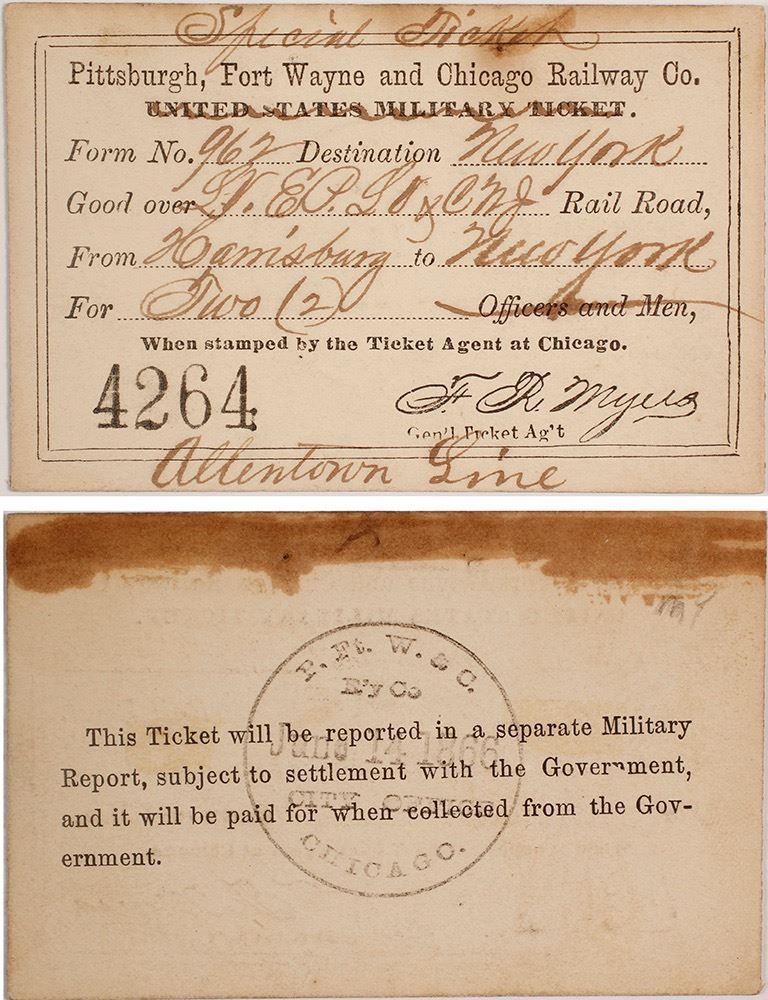 Special Ticket
Pittsburgh, Fort Wayne and Chicago Railway Co.
UNITED STATES MILITARY TICKET.
Form No. 962 Destination New York
Good over Rail Road,
From Harrisburg to New York
For Two (2) Officers and Men,
When stamped by the Ticket Agent at Chicago.
4264
F. R. Myers
Gen'l Ticket Ag't
Allentown Line
P. Ft. W. & C.
R'y Co
June 14 1866
CITY OFFICE
CHICAGO.
This Ticket will be reported in a separate Military
Report, subject to settlement with the Government,
and it will be paid for when collected from the Gov-
ernment.